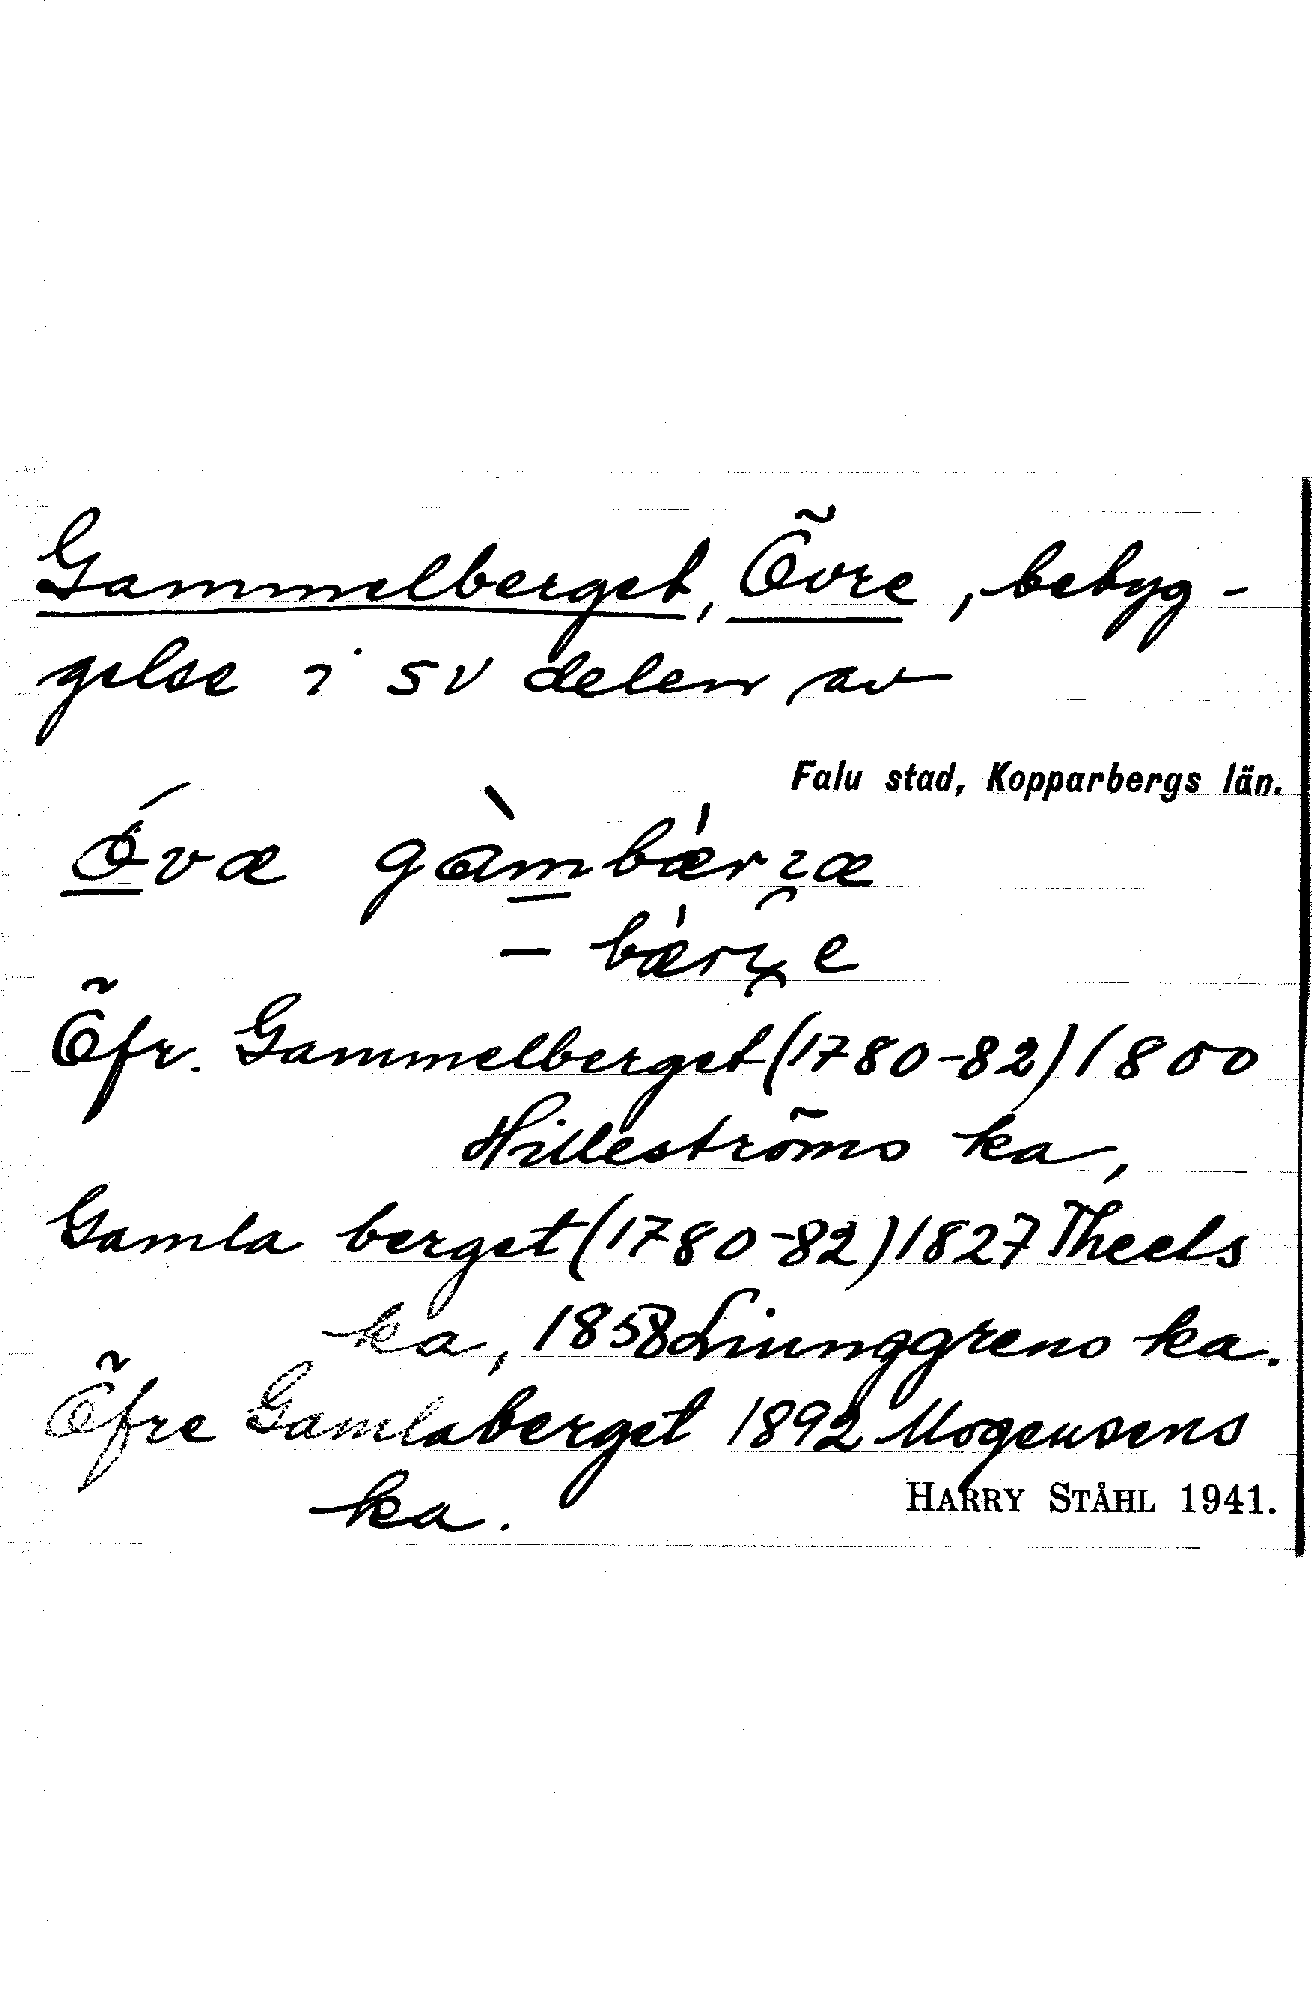 Gammelberget, Övre, bebyg-
gelse i SV delen av
Falu stad, Kopparbergs län.
Öfr. Gammelberget (1780-82) 1800
Hilleströms ka,
Gamla berget (1780-82) 1827 Theels
ka, 1858 Liunggrens ka.
Öfre Gamlaberget 1892 Mogensens
ka.
HARRY STÅHL 1941.